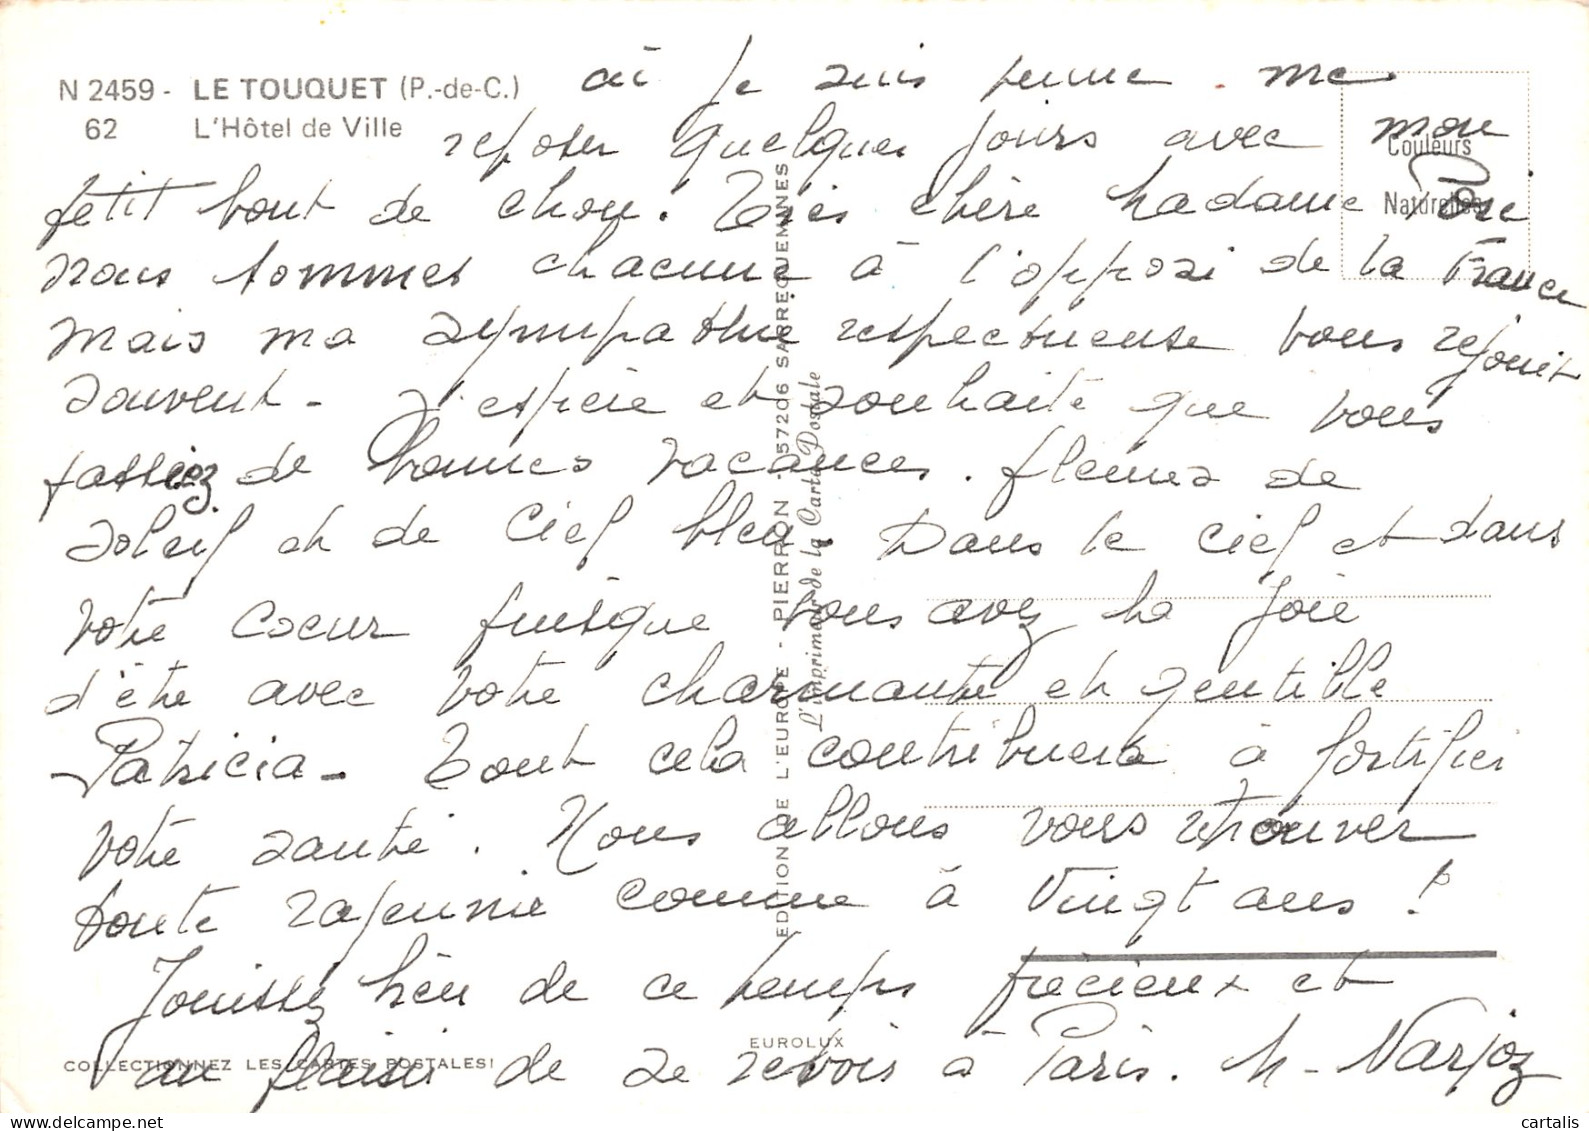 N 2459 - LE TOUQUET (P.-de-C.)
62 L'Hôtel de Ville
Couleurs
Naturelles
où je suis venue me
reposer quelques jours avec mon
petit bout de chou. Très chère Madame
nous sommes chacune à l'opposé de la France
mais ma sympathie respectueuse vous rejoint
souvent - J'espère et souhaite que vous
passiez de bonnes vacances. pleines de
soleil et de ciel bleu. Dans le ciel et dans
votre coeur puisque vous avez la joie
d'être avec votre charmante et gentille
Patricia - Tout cela contribuera à fortifier
votre santé. Nous allons vous retrouver
toute rajeunie comme à vingt ans !
Jouissez bien de ce temps précieux et
au plaisir de se revoir à Paris. M - Narjoz
EDITION DE L'EUROPE - PIERRON - 57206 SARREGUEMINES
L'imprimeur de la Carte Postale
EUROLUX
COLLECTIONNEZ LES CARTES POSTALES!
delcampe.net
cartalis